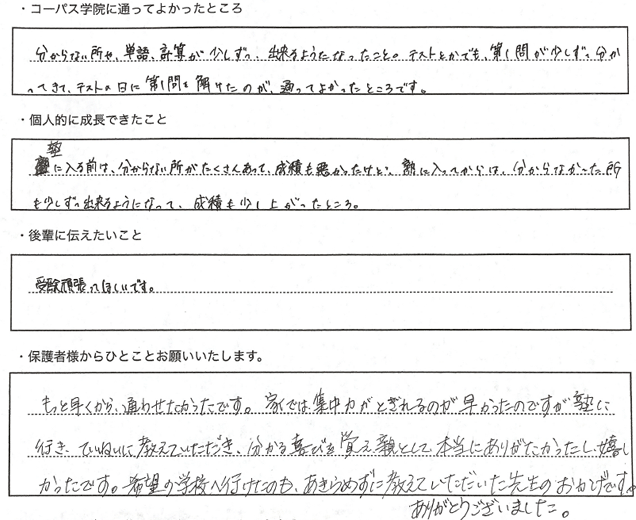 ・コーパス学院に通ってよかったところ
分からない所や、単語、計算が少しずつ出来るようになったこと。テストとかでも、第1問が少しずつ分か
ってきて、テストの日に第1問を解けたのが、通ってよかったところです。
・個人的に成長できたこと
塾に入る前は、分からない所がたくさんあって、成績も悪かったけど、塾に入ってからは、分からなかった所
も少しずつ出来るようになって、成績も少し上がったところ。
・後輩に伝えたいこと
受験頑張ってほしいです。
・保護者様からひとことお願いいたします。
もっと早くから、通わせたかったです。家では集中力がとぎれるのが早かったのですが塾に
行き、ていねいに教えていただき、分かる喜びを覚え親として本当にありがたかったし、嬉し
かったです。希望の学校へ行けたのも、あきらめずに教えていただいた先生のおかげです。
ありがとうございました。